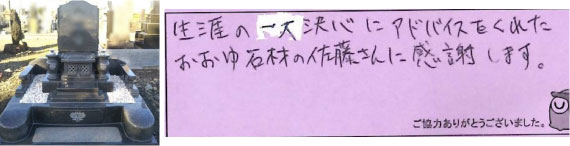 生涯の一大決心にアドバイスをくれた
おおゆ石材の佐藤さんに感謝します。
ご協力ありがとうございました。